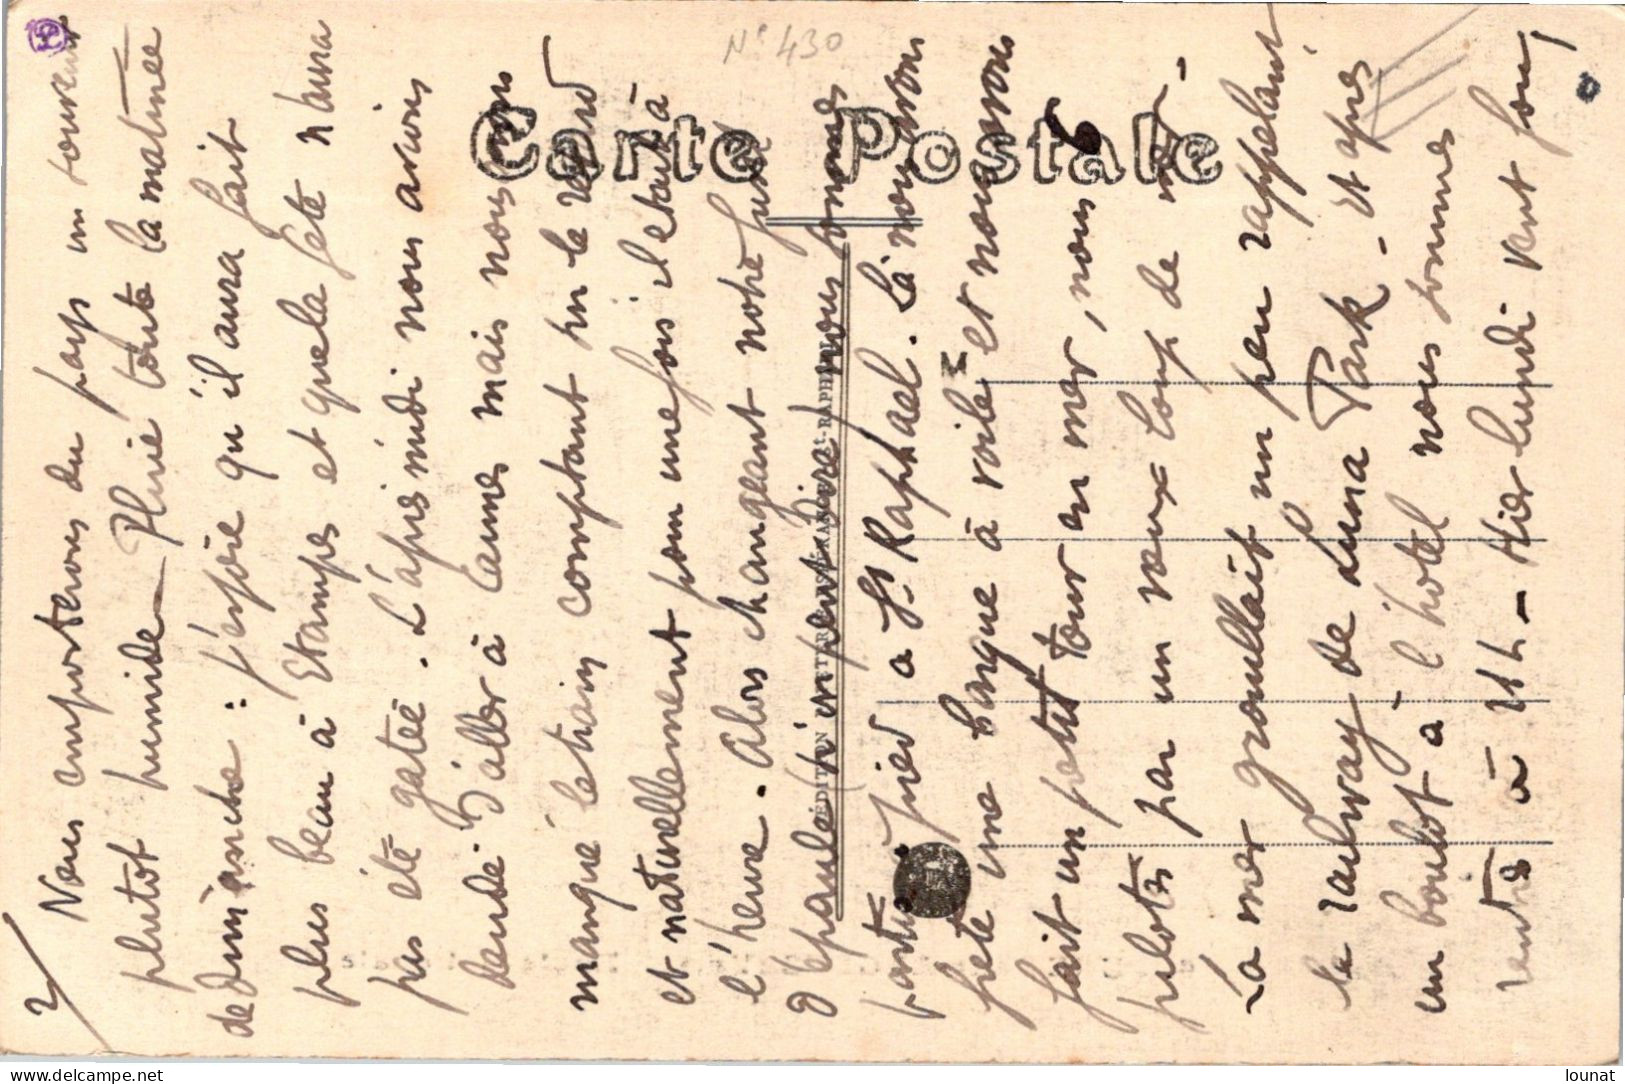 2/
Nous emporterons du pays un souvenir
plutot humide - Pluie toute la matinée
de dimanche : j'espère qu'il aura fait
plus beau à Etampes et que la fête n'aura
pas été gatée. L'après midi nous avions
decidé d'aller à Cannes mais nous avons
manqué le train comptant sur le retard
et naturellement pour une fois il était à
l'heure. Alors changeant notre fusil
d'épaule si on peut dire nous sommes
partis à pied à St Raphael. Là nous avons
frété une barque à voile et nous avons
fait un petit tour en mer, nous 6
pilotés par un vieux loup de mer -
La mer grouillait un peu rappelant
le railway de Luna Park - et après
un boulot à l'hotel nous sommes
rentrés à 11h - Hier lundi vent fou !
N° 430
Carte Postale
EDITION -RAPHAEL
delcampe.net
lounat